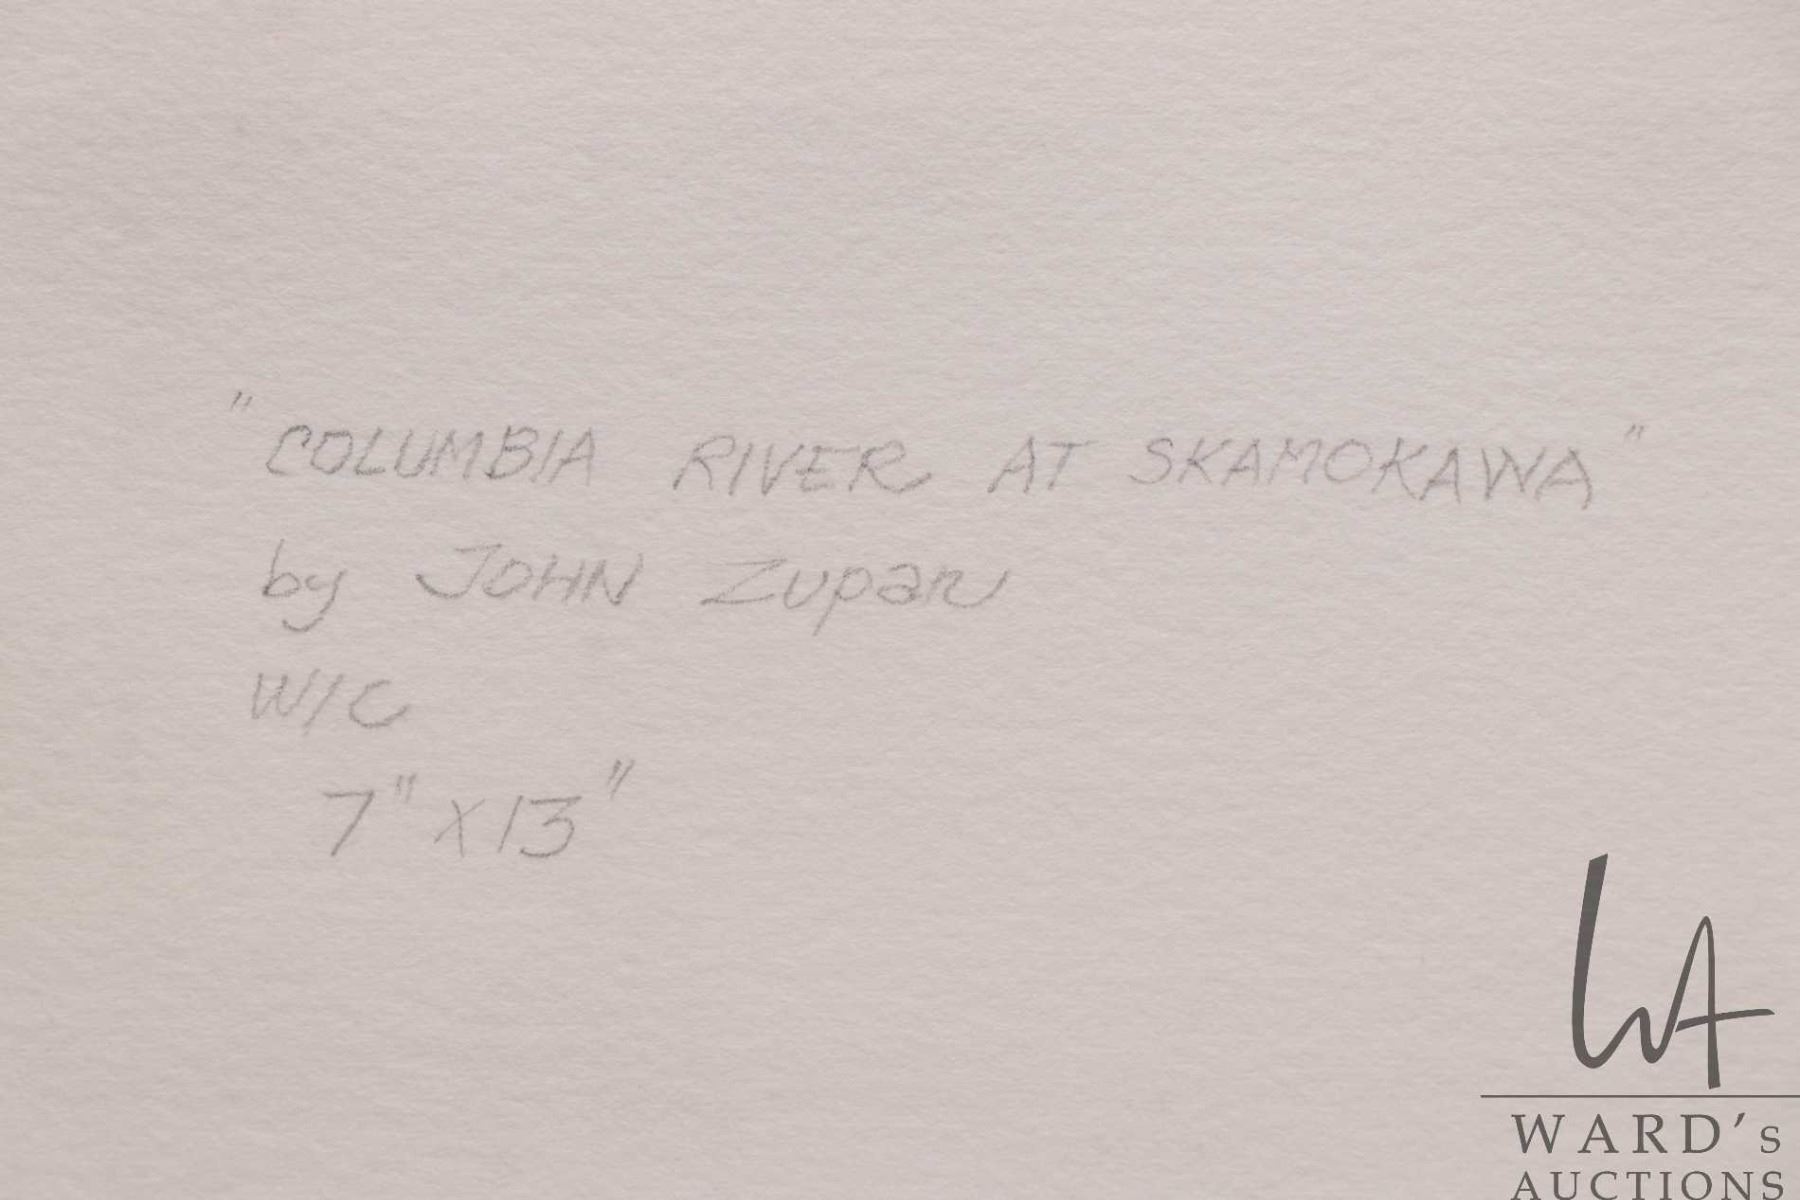 "COLUMBIA RIVER AT SKAMOKAWA"
by JOHN Zupan
W/C
7" x 13"
WA
WARD's
AUCTIONS